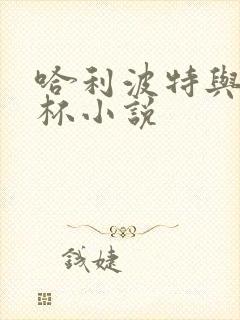 哈利波特與
杯小說
錢婕